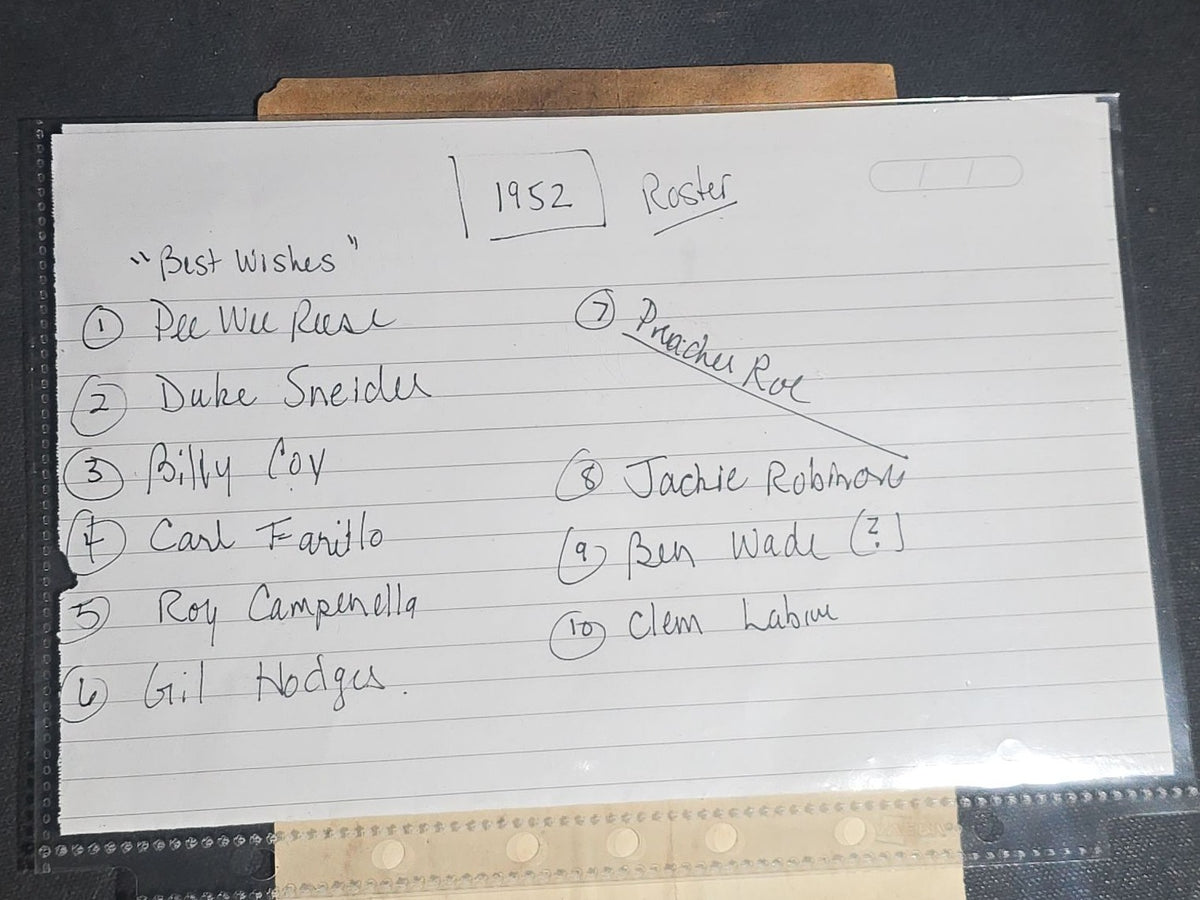 1952 Roster
"Best Wishes"
① Pee Wee Reese
② Duke Sneider
③ Billy Cox
④ Carl Farillo
⑤ Roy Campenella
⑥ Gil Hodges.
⑦ Preacher Roe
⑧ Jackie Robinson
⑨ Ben Wade (?)
⑩ Clem Labine